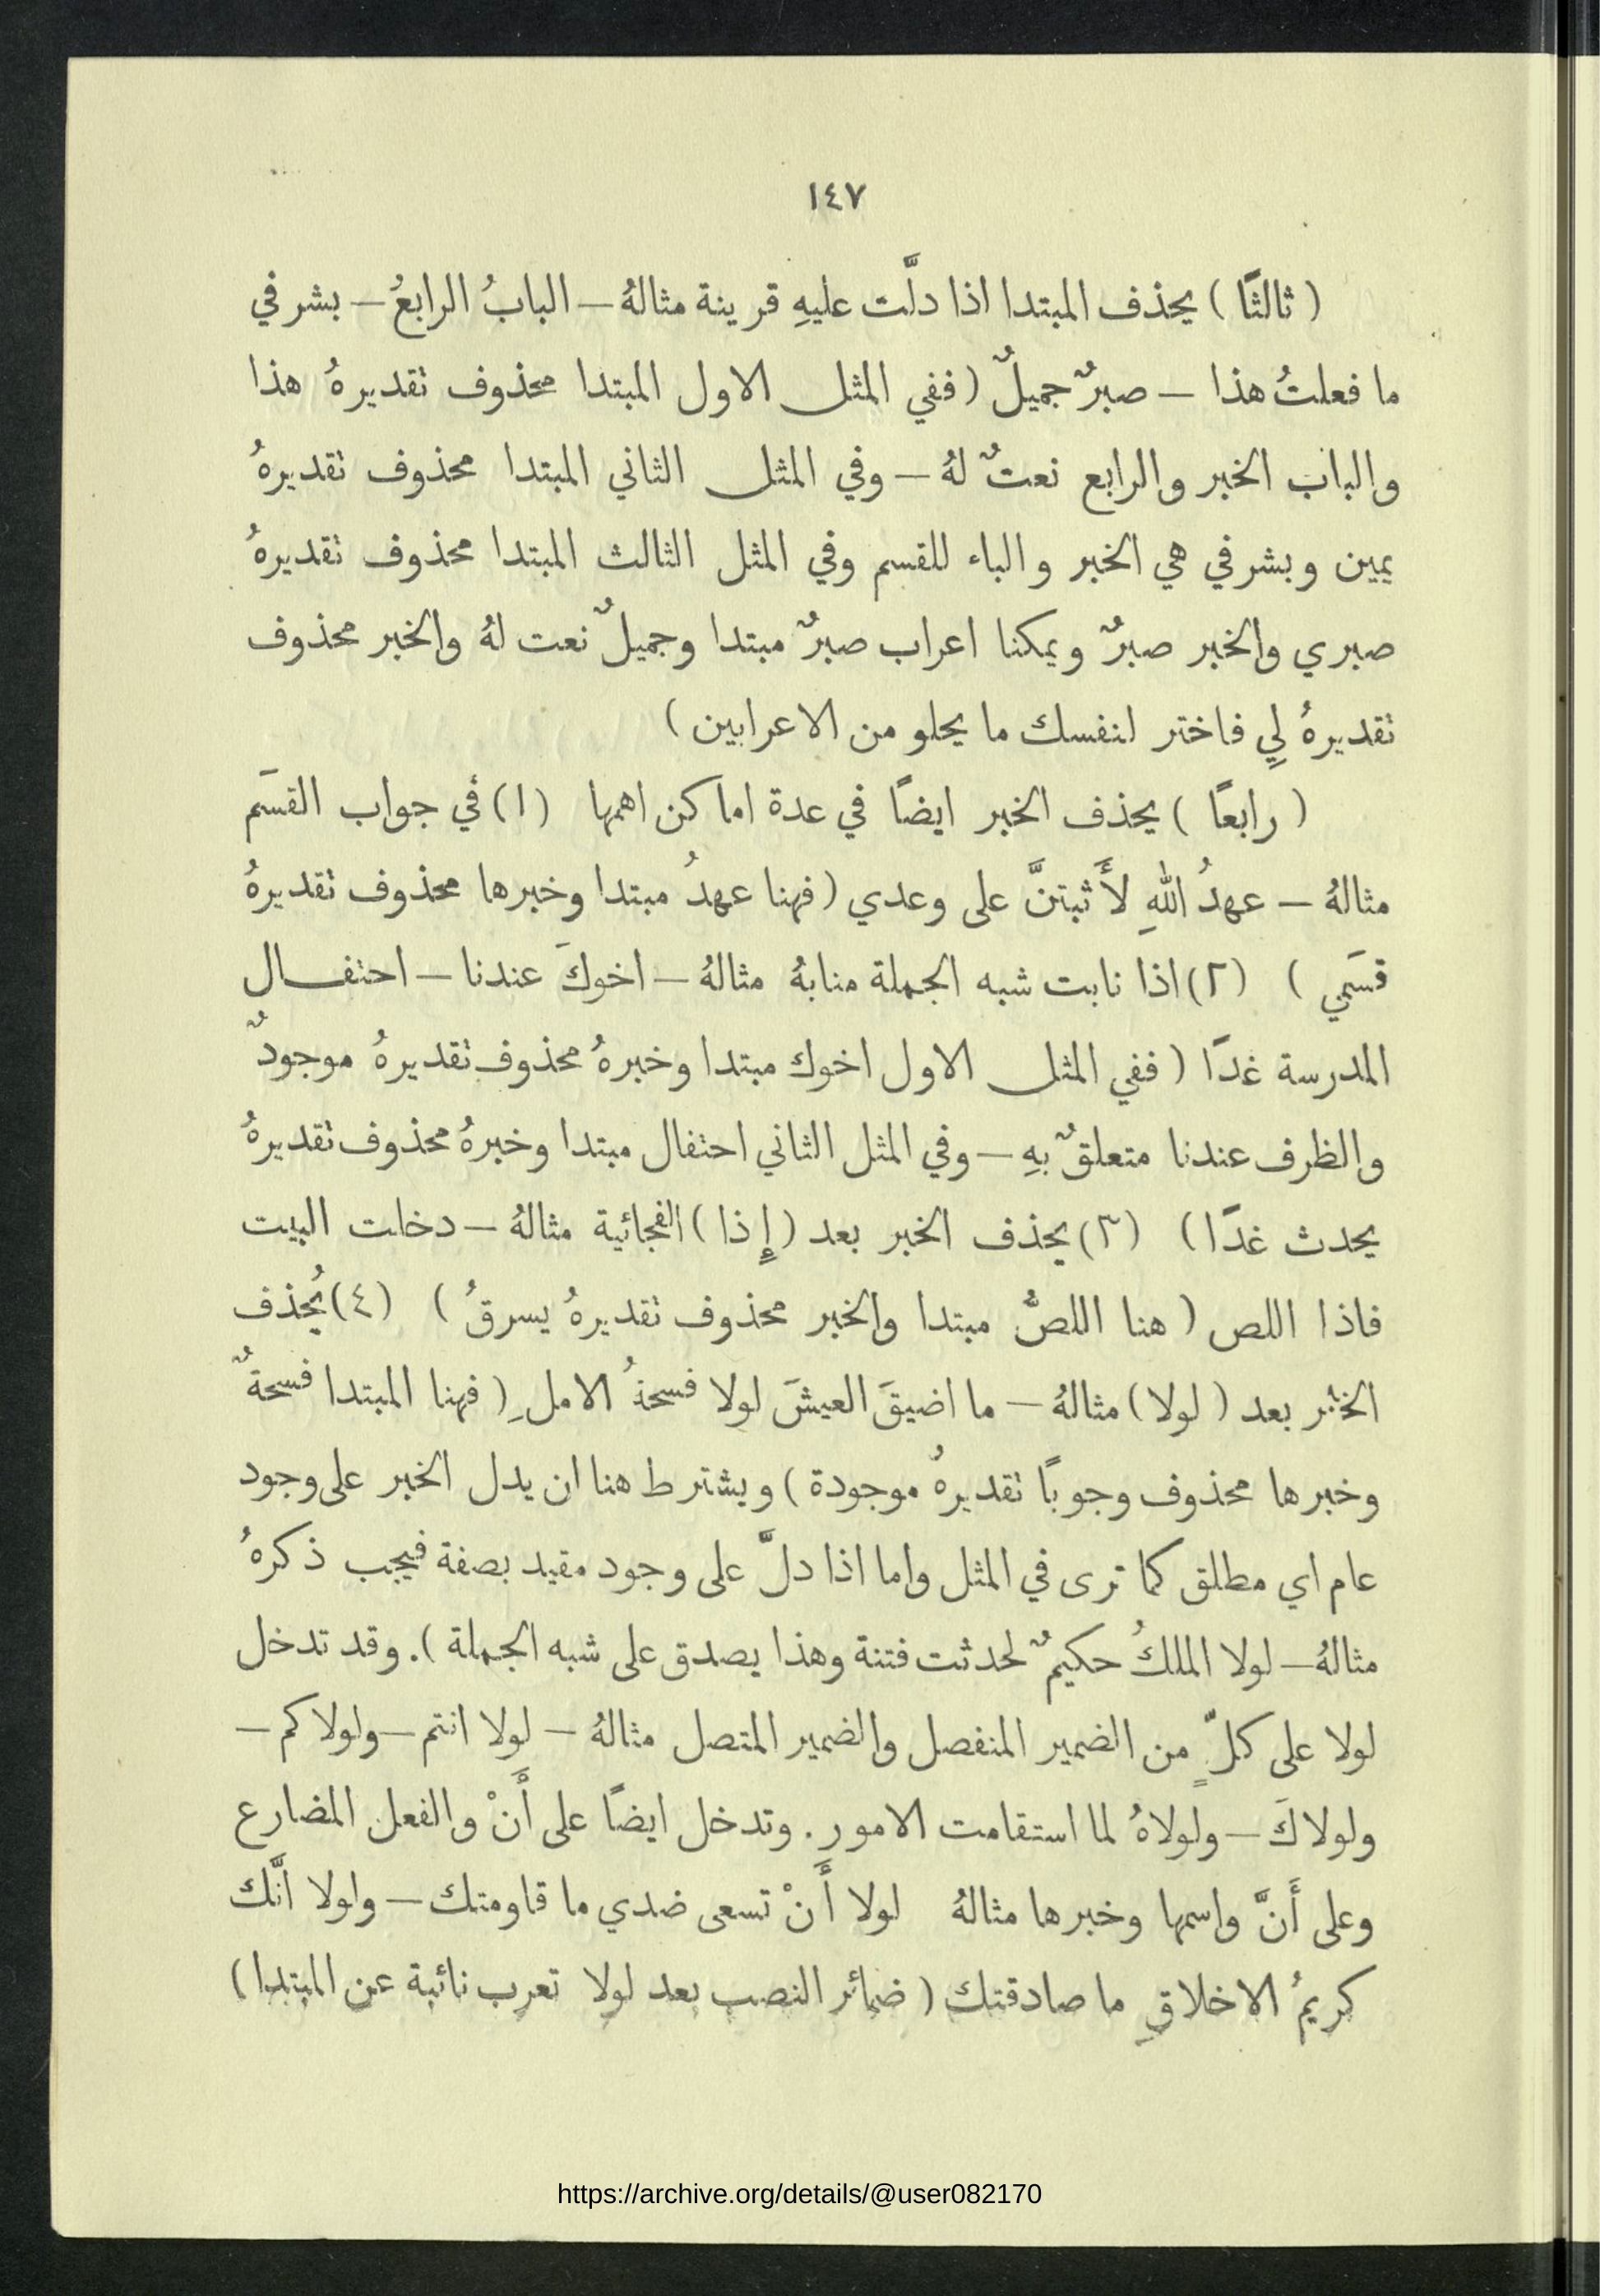 ١٤٧
( ثالثًا ) يحذف المبتدا اذا دلَّت عليهِ قرينة مثالهُ – البابُ الرابعُ – بشرفي
ما فعلتُ هذا – صبرٌ جميلٌ ( ففي المثل الاول المبتدا محذوف تقديرهُ هذا
والباب الخبر والرابع نعتٌ لهُ – وفي المثل الثاني المبتدا محذوف تقديرهُ
يمين وبشرفي هي الخبر والباء للقسم وفي المثل الثالث المبتدا محذوف تقديرهُ
صبري والخبر صبرٌ ويمكنا اعراب صبرٌ مبتدا وجميلٌ نعت لهُ والخبر محذوف
تقديرهُ لِي فاختر لنفسك ما يحلو من الاعرابين )
( رابعًا ) يحذف الخبر ايضًا في عدة اماكن اهمها (١) في جواب القسَم
مثالهُ – عهدُ اللهِ لأَثبتنَّ على وعدي ( فهنا عهدُ مبتدا وخبرها محذوف تقديرهُ
قسَمي ) (٢) اذا نابت شبه الجملة منابهُ مثالهُ – اخوكَ عندنا – احتفال
المدرسة غدًا ( ففي المثل الاول اخوك مبتدا وخبرهُ محذوف تقديرهُ موجودٌ
والظرف عندنا متعلقٌ بهِ – وفي المثل الثاني احتفال مبتدا وخبرهُ محذوف تقديرهُ
يحدث غدًا ) (٣) يحذف الخبر بعد ( إِذا ) الفجائية مثالهُ – دخلت البيت
فاذا اللص ( هنا اللصُّ مبتدا والخبر محذوف تقديرهُ يسرقُ ) (٤) يُحذف
الخبر بعد ( لولا ) مثالهُ – ما اضيقَ العيشَ لولا فسحةُ الاملِ ( فهنا المبتدا فسحةٌ
وخبرها محذوف وجوبًا تقديرهُ موجودة ) ويشترط هنا ان يدل الخبر على وجود
عام اي مطلق كما ترى في المثل واما اذا دلَّ على وجود مقيد بصفة فيجب ذكرهُ
مثالهُ – لولا الملكُ حكيمٌ لحدثت فتنة وهذا يصدق على شبه الجملة ). وقد تدخل
لولا على كلٍّ من الضمير المنفصل والضمير المتصل مثالهُ – لولا انتم – ولولاكم –
ولولاكَ – ولولاهُ لما استقامت الامور. وتدخل ايضًا على أَنْ والفعل المضارع
وعلى أَنَّ واسمها وخبرها مثالهُ لولا أَنْ تسعى ضدي ما قاومتك – ولولا أَنَّك
كريمُ الاخلاقِ ما صادقتك ( ضمائر النصب بعد لولا تعرب نائبة عن المبتدا )
https://archive.org/details/@user082170